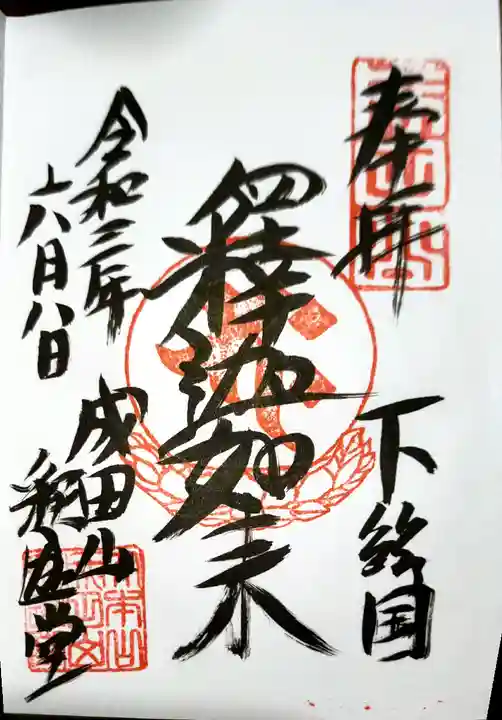 奉拝
下総国
釋迦如来
成田山
釈迦堂
令和三年
六月八日